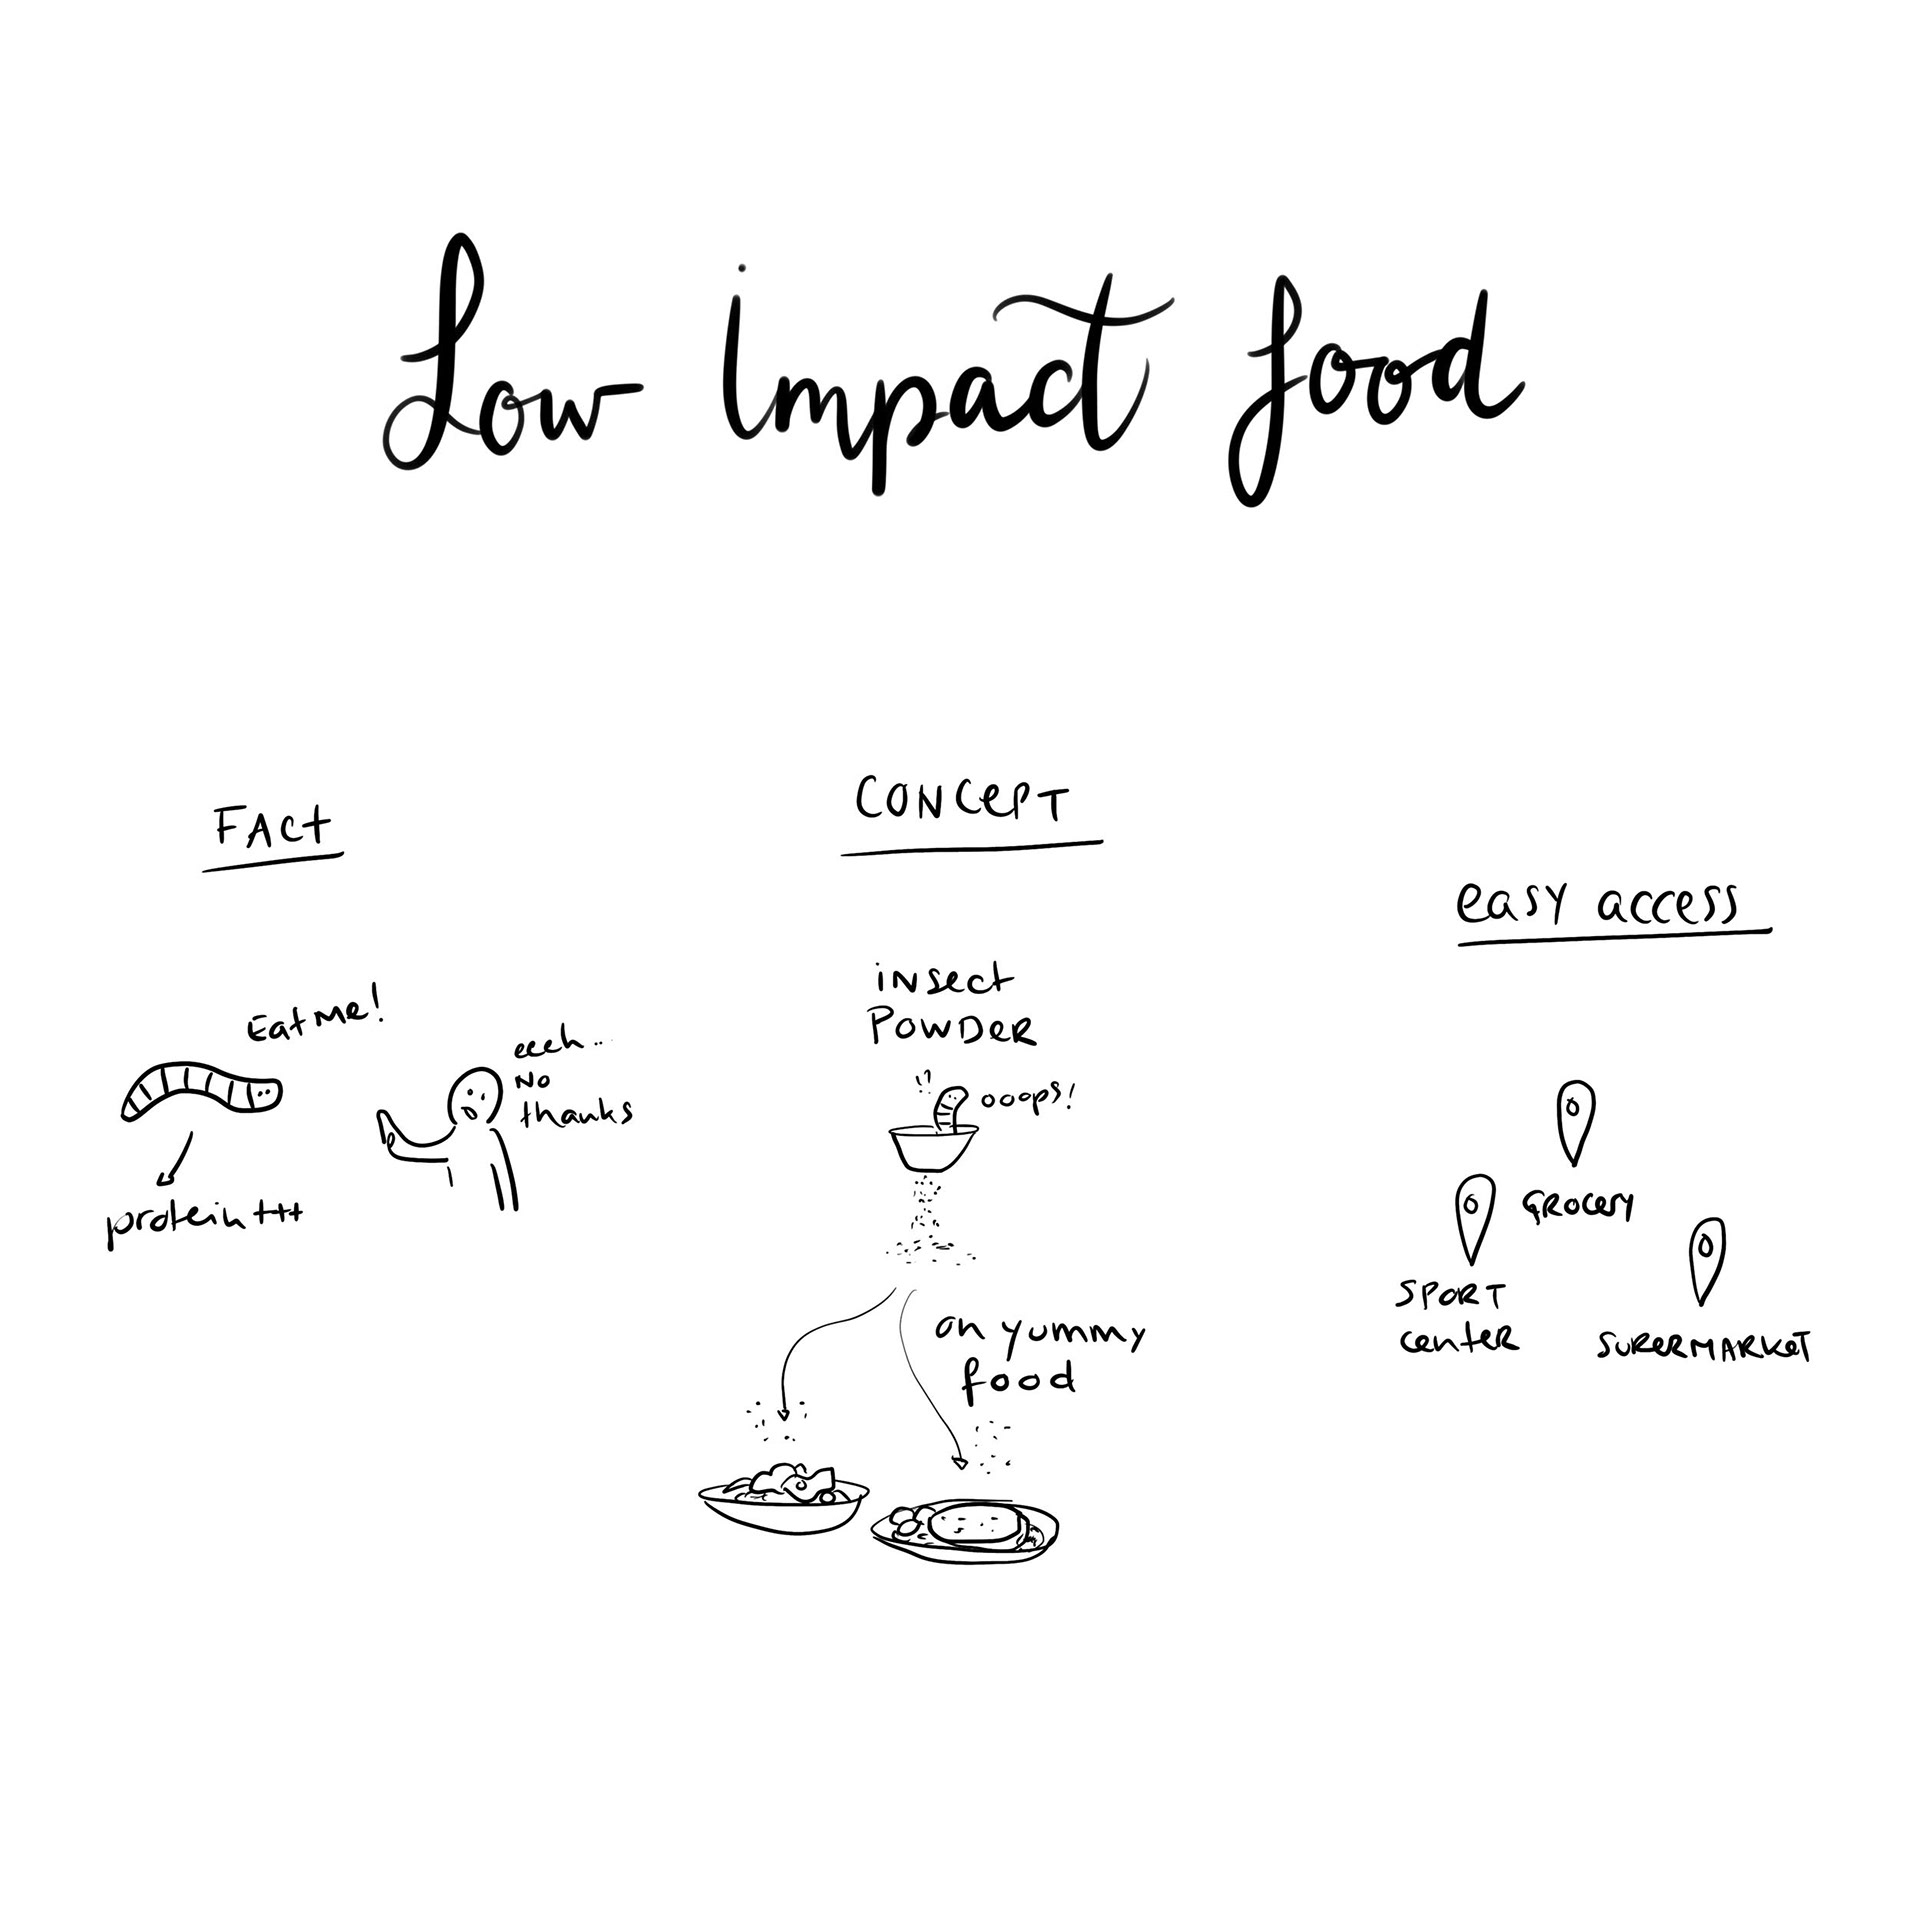 Low impact food
FACT
Eat me!
eeh...
No
thanks
protein +++
CONCEPT
insect
POWDER
ooops!
oh yummy
food
easy access
GROCERY
SPORT
center
SUPERMARKET